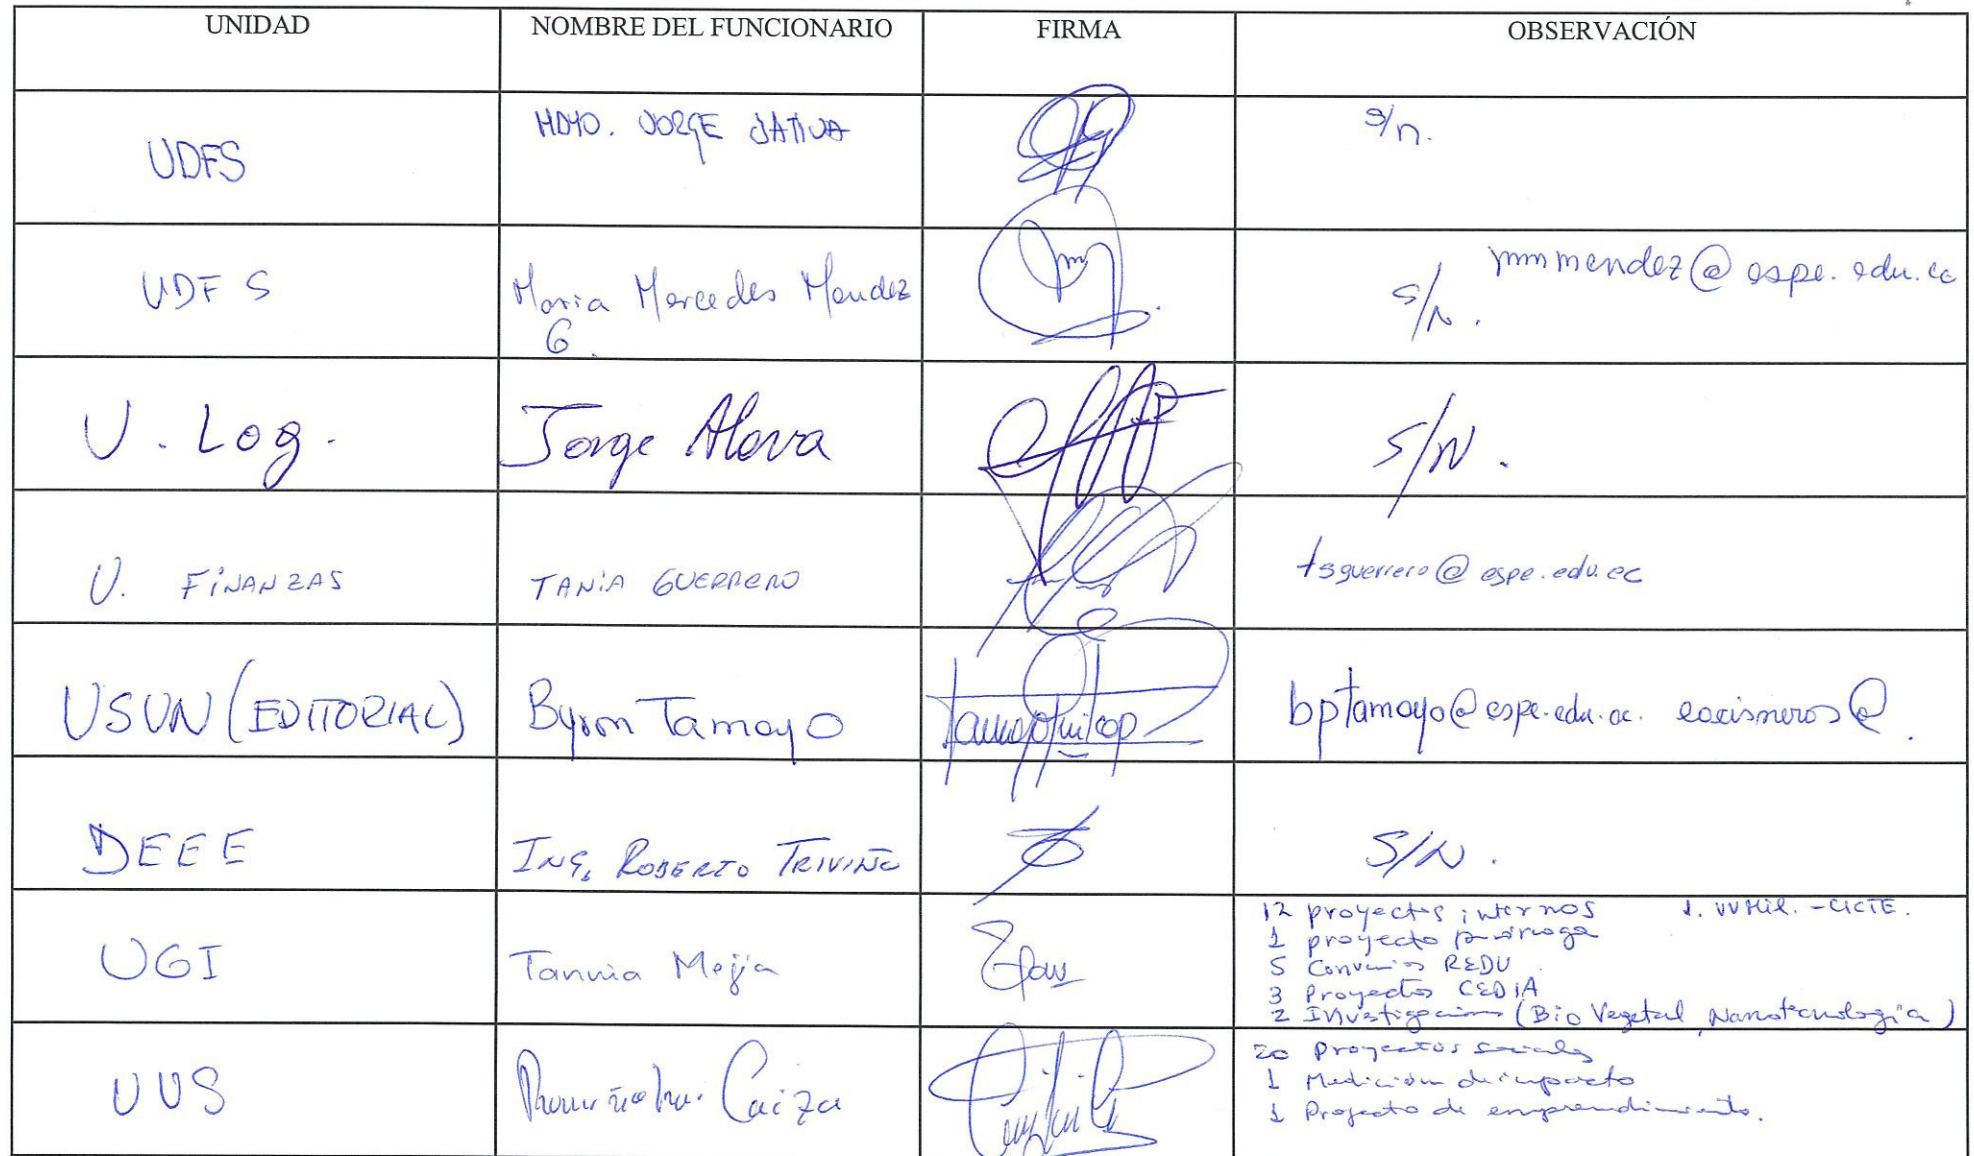 UNIDAD NOMBRE DEL FUNCIONARIO FIRMA OBSERVACIÓN
UDFS JORGE JATIVA S/n.
UDFS Maria Mercedes Mendez S/N. mmmendez@espe.edu.ec
G.
U. Log. Jorge Alava S/N.
U. FiNANZAS TANiA GUERRERO tsguerrero@espe.edu.ec
USUN (EDITORIAL) Byron Tamayo bptamayo@espe.edu.ec. eacisneros@.
DEEE ING. ROBERTO TRIVIÑO S/N.
UGI Tannia Mejia
12 proyectos internos 1. VVMil. - CICTE.
1 proyecto prórroga
5 Convenios REDU
3 Proyectos CEDIA
2 (Bio Vegetal, Nanotecnología)
UVS Caiza
20 Proyectos sociales
1 Medición de impacto
1 Proyecto de emprendimiento.